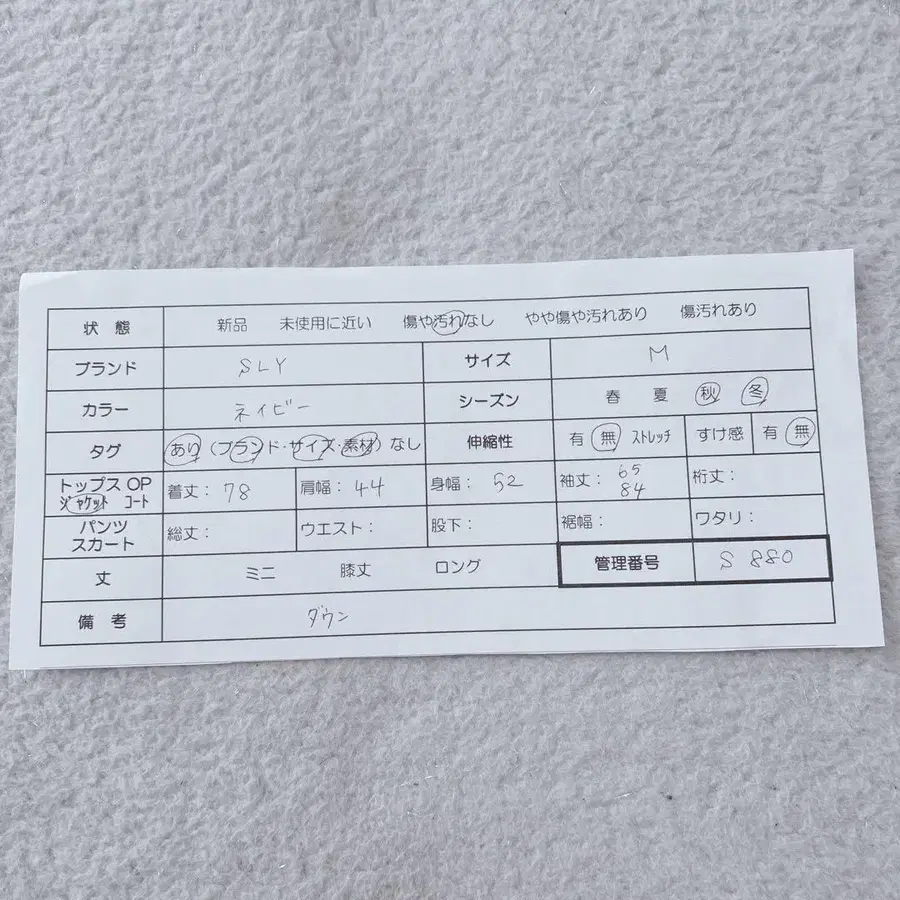 状態 新品 未使用に近い 傷や汚れなし やや傷や汚れあり 傷汚れあり
ブランド SLY サイズ M
カラー ネイビー シーズン 春 夏 秋 冬
タグ あり (ブランド・サイズ・素材) なし 伸縮性 有 無 ストレッチ すけ感 有 無
トップス OP
ジャケット コート
着丈: 78 肩幅: 44 身幅: 52 袖丈: 65 84 裄丈:
パンツ
スカート
総丈: ウエスト: 股下: 裾幅: ワタリ:
丈 ミニ 膝丈 ロング 管理番号 S 880
備考 ダウン